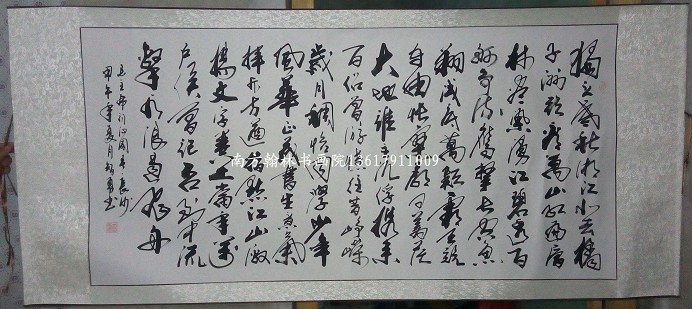 獨立寒秋湘江北去橘
子洲头看萬山红遍層
林尽染漫江碧透百
舸争流鹰擊长空魚
翔浅底萬類霜天競
自由怅寥廓问苍茫
大地谁主沉浮携来
百侣曾游忆往昔峥嵘
歲月稠恰同學少年
風華正茂書生意氣
挥斥方遒指點江山激
揚文字粪土當年萬
户侯曾记否到中流
擊水浪遏飞舟
毛主席词沁园春长沙
甲午年夏月 書
南方翰林书画院13617911009